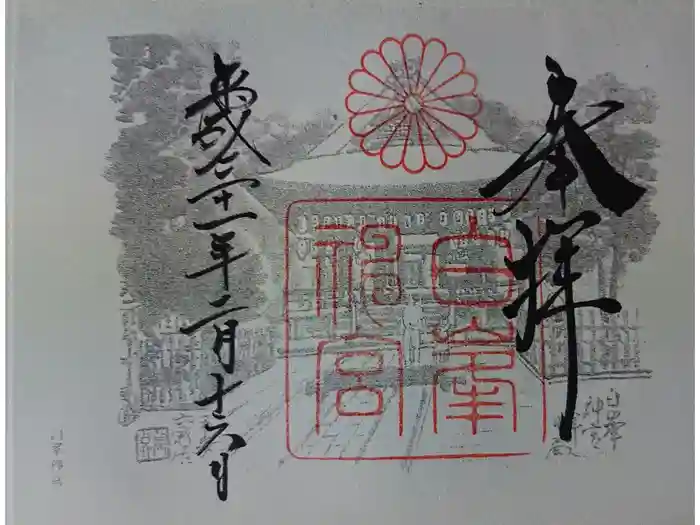 奉拝
白峯
神宮
平成三十一年二月十六日
白峯
神宮